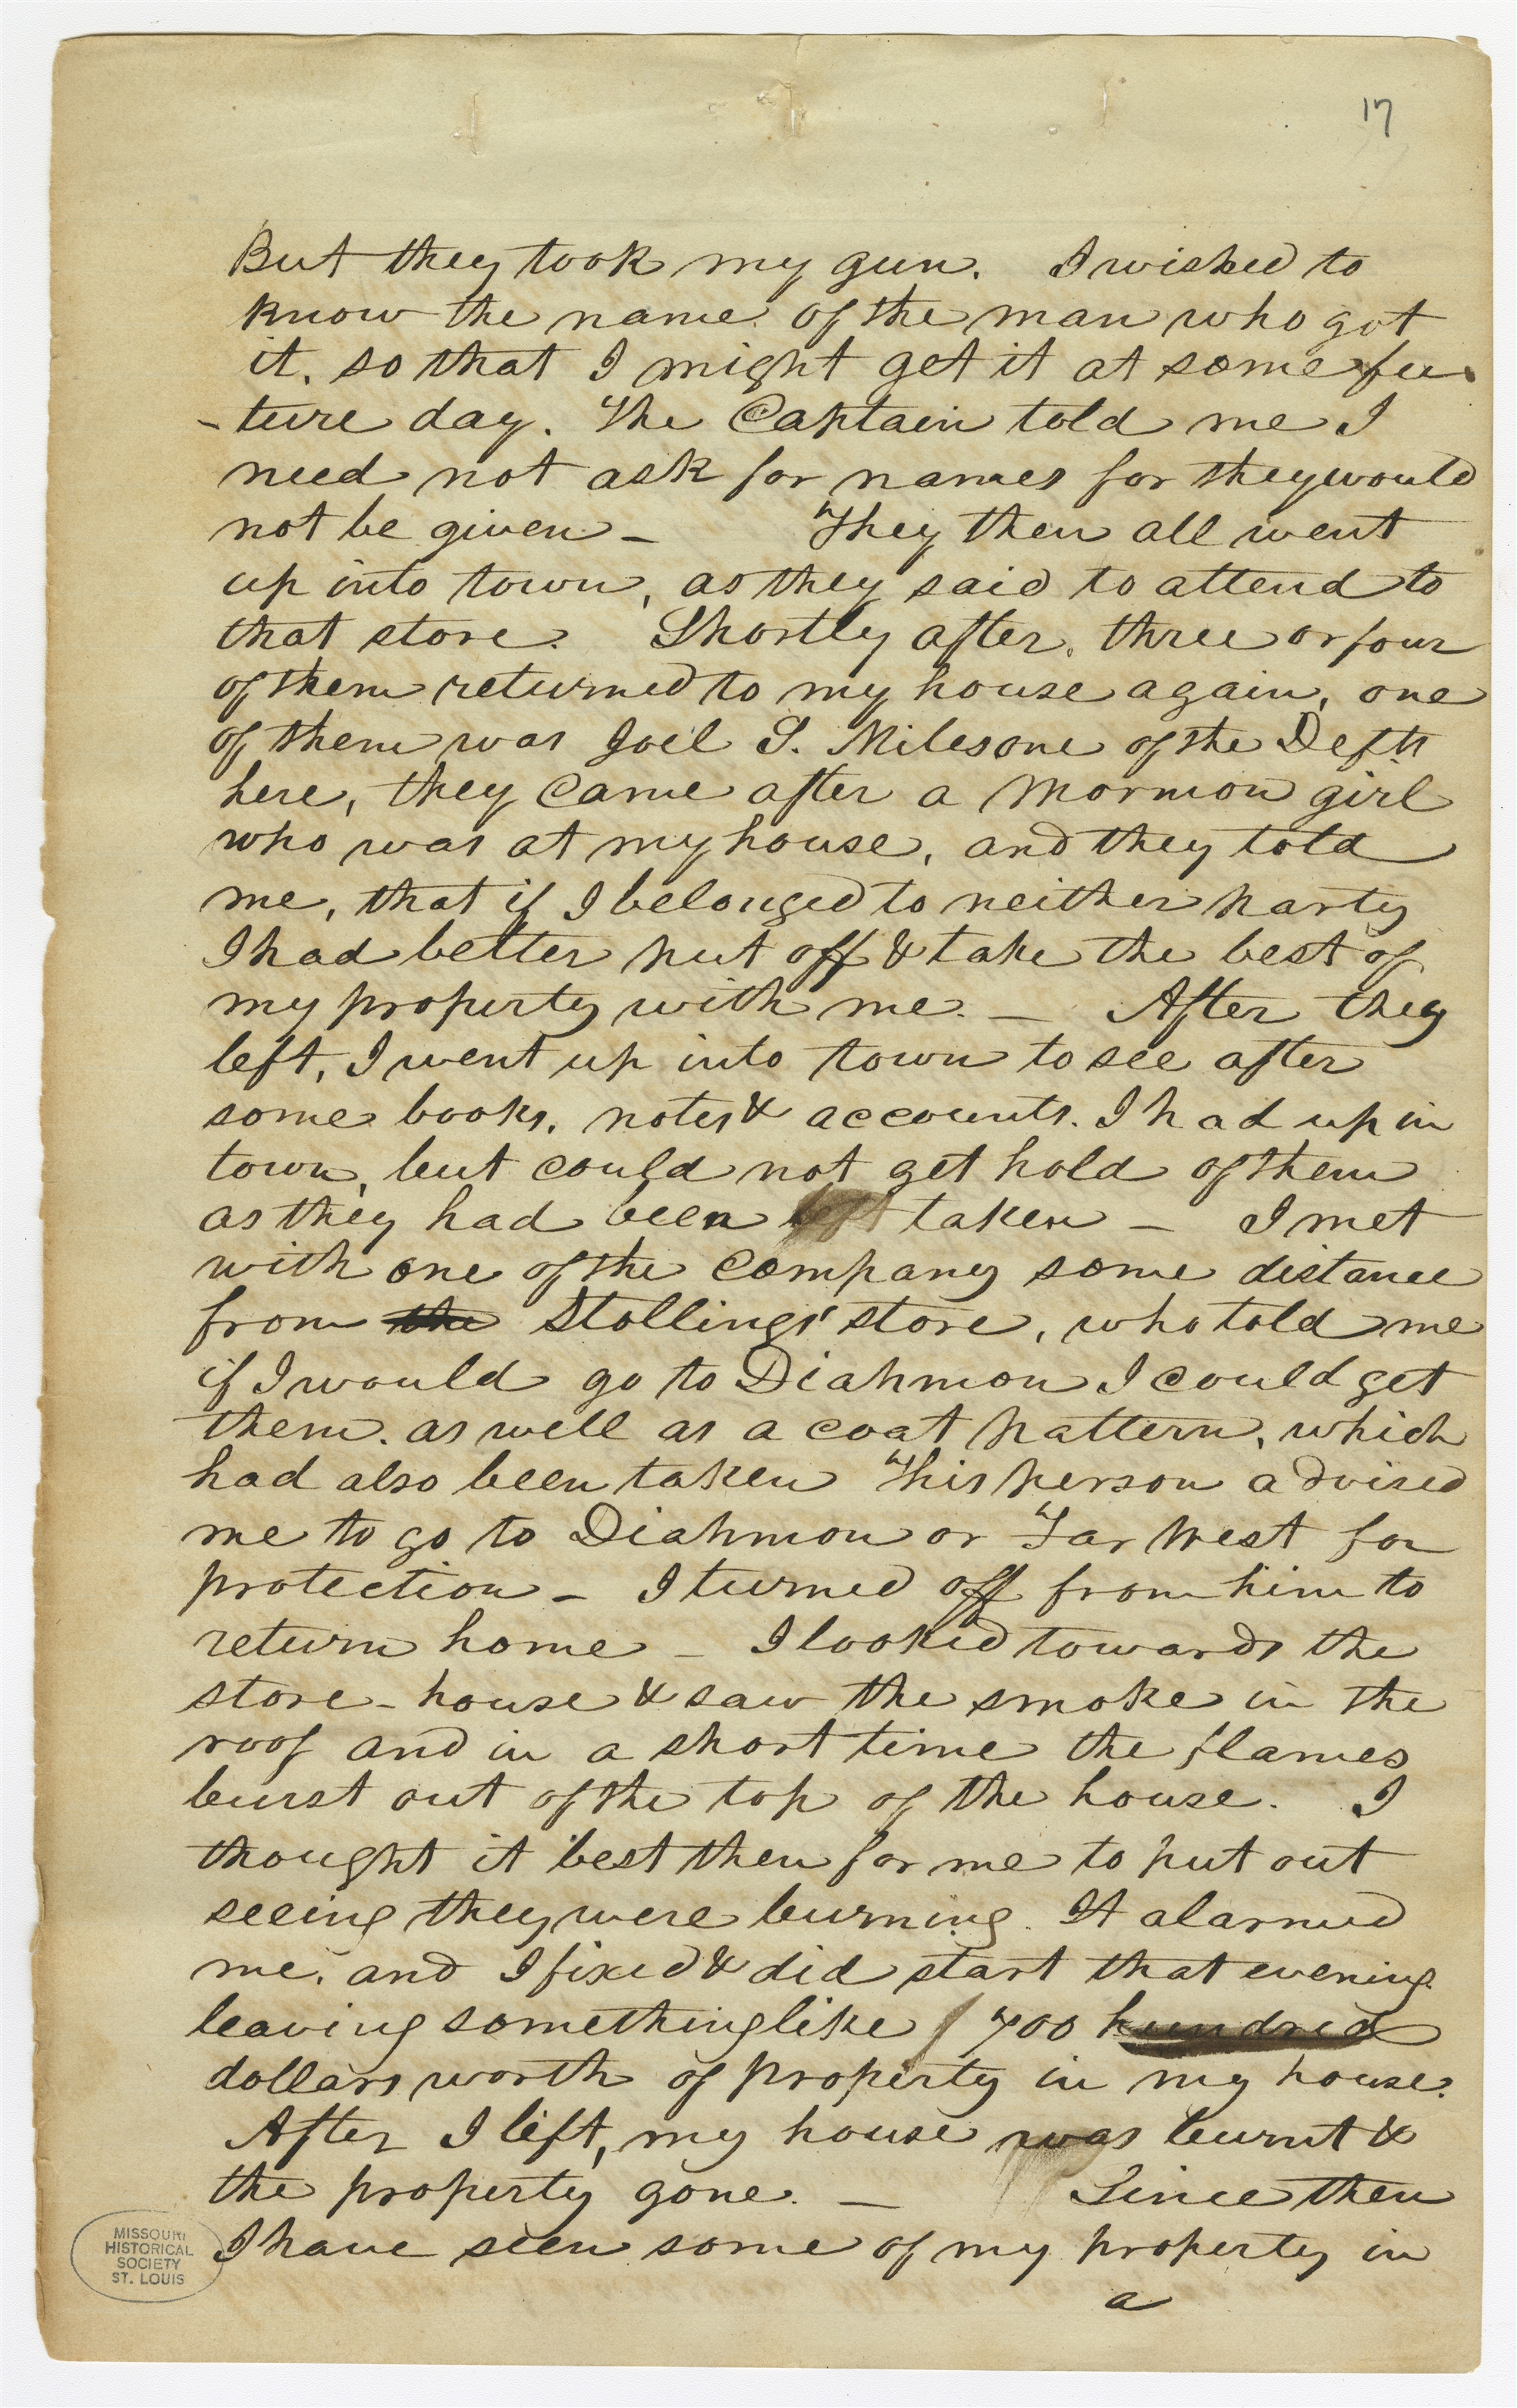 17
But they took my gun. I wished to
know the name of the man who got
it, so that I might get it at some fu-
-ture day. The Captain told me I
need not ask for names for they would
not be given – They then all went
up into town, as they said to attend to
that store. Shortly after, three or four
of them returned to my house again, one
of them was Joel S. Miles one of the Defts
here, they came after a Mormon girl
who was at my house, and they told
me, that if I belonged to neither party
I had better put off & take the best of
my property with me. – After they
left, I went up into town to see after
some books, notes & accounts. I had up in
town, but could not get hold of them
as they had been taken – I met
with one of the Company some distance
from the Stollings' store, who told me
if I would go to Diahmon I could get
them. as well as a coat pattern, which
had also been taken This person advised
me to go to Diahmon or Far West for
protection – I turned off from him to
return home – I looked towards the
store-house & saw the smoke in the
roof and in a short time the flames
burst out of the top of the house. I
thought it best then for me to put out
seeing they were burning. It alarmed
me, and I fixed & did start that evening
leaving something like 700 hundred
dollars worth of property in my house.
After I left, my house was burnt &
the property gone. – Since then
I have seen some of my property in
a
MISSOURI
HISTORICAL
SOCIETY
ST. LOUIS